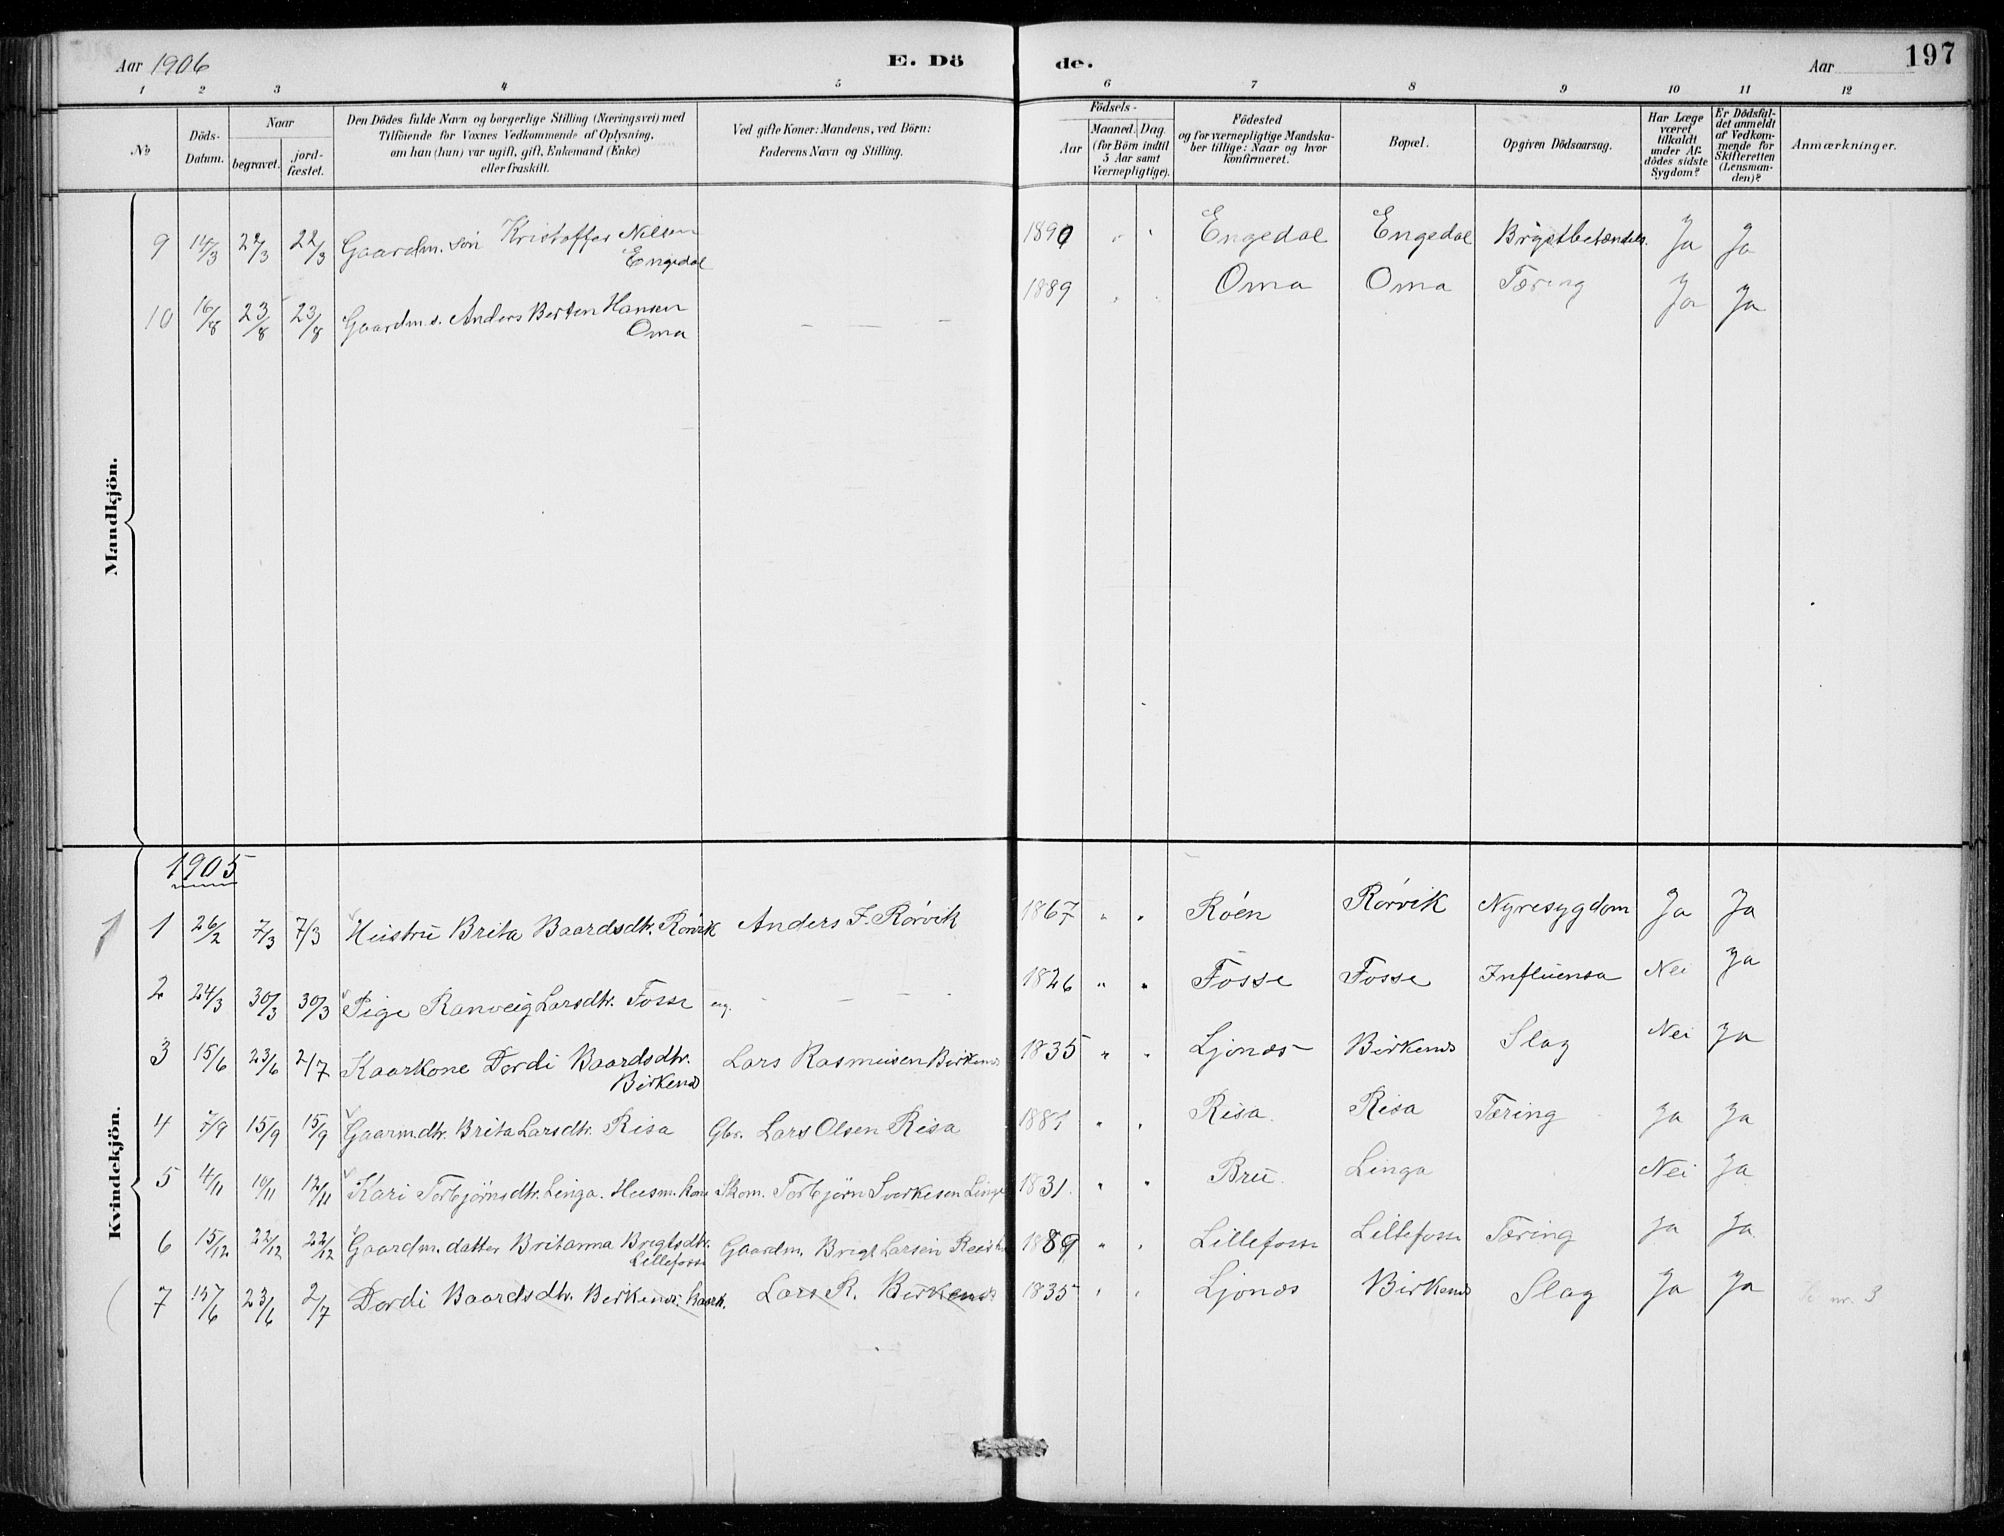 Aar 1906
E. Dö
de.
Aar
197
1 2 3 4 5 6 7 8 9 10 11 12
№
Döds-Datum.
Naar
begravet.
jord-fæstet.
Den Dödes fulde Navn og borgerlige Stilling (Næringsvei) med
Tilföiende for Voxnes Vedkommende af Oplysning,
om han (hun) var ugift, gift, Enkemand (Enke)
eller fraskilt.
Ved gifte Koner: Mandens, ved Börn:
Faderens Navn og Stilling.
Födsels-
Aar
Maaned. Dag.
(for Börn indtil
5 Aar samt
Værnepligtige).
Födested
og for værnepligtige Mandska-
ber tillige: Naar og hvor
konfirmeret.
Bopæl.
Opgiven Dödsaarsag.
Har Læge
været
tilkaldt
under Af-
dödes sidste
Sygdom?
Er Dödsfal-
det anmeldt
af Vedkom-
mende for
Skifteretten
(Lensman-
den)?
Anmærkninger.
Mandkjön.
9 14/3 22/3 22/3 Gaardm. sön Kristoffer Nilsen 1890 " " Engedal Engedal Brystbetændels. Ja Ja
Engedal
10 16/8 23/8 23/8 Gaardm. s. Anders Berten Hansen — — — 1889 " " Oma Oma Tæring Ja Ja
Oma
Kvindekjön.
1905
1 26/2 7/3 7/3 Hustru Brita Baardsdtr. Rørvik Anders F. Rørvik 1867 " " Røen Rørvik Nyresygdom Ja Ja
2 24/3 30/3 30/3 Pige Ranveig Larsdtr. Fosse ug. — — 1826 " " Fosse Fosse Influensa Nei Ja
3 15/6 23/6 2/7 Kaarkone Dordi Baardsdtr. Lars Rasmusen Birkenes 1835 " " Ljones Birkenes Slag Nei Ja
Birkenes
4 7/9 15/9 15/9 Gaarm. dtr. Brita Larsdtr. Risa Gbr. Lars Olsen Risa 1881 " " Risa Risa Tæring Ja Ja
5 4/11 10/11 12/11 Kari Torbjørnsdtr. Linga. Husm. kone Skom. Torbjørn Sverkesen Linga 1831. " " Bru Linga Nei Ja
6 15/12 22/12 22/12 Gaardm. datter Britanna Brigtsdtr. Gaardm. Brigt Larsen 1889 " " Lillefosse Lillefosse Tæring Ja Ja
Lillefosse
7 15/6 23/6 2/7 Dordi Baardsdtr. Birkenes. kaark. Lars R. Birkenes 1835 " " Ljones Birkenes Slag Ja Ja Se nr. 3